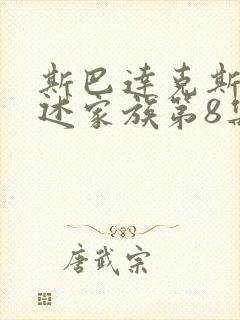 斯巴达克斯
述家族第8集
唐武宗